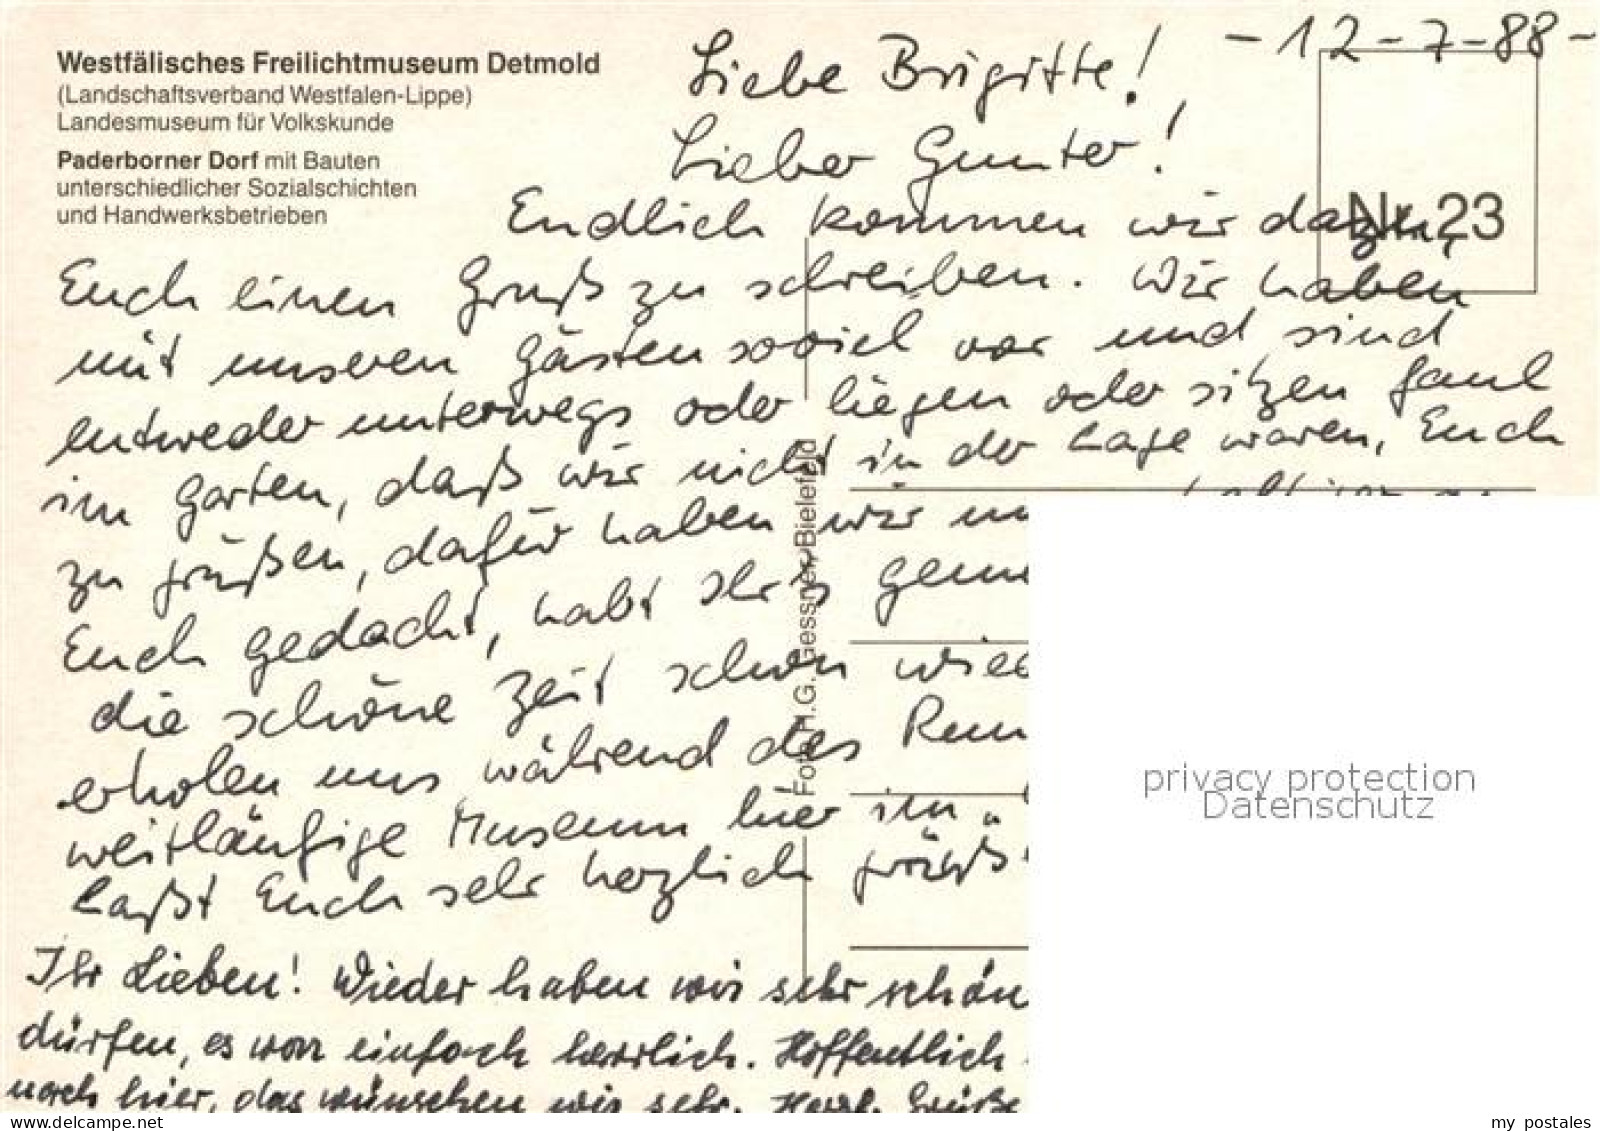 Westfälisches Freilichtmuseum Detmold
(Landschaftsverband Westfalen-Lippe)
Landesmuseum für Volkskunde
Paderborner Dorf mit Bauten
unterschiedlicher Sozialschichten
und Handwerksbetrieben
Nr. 23
Foto: H.G. Gessner, Bielefeld
-12-7-88-
Liebe Brigitte!
Lieber Gunter!
Endlich kommen wir dazu,
Euch einen Gruß zu schreiben. Wir haben
mit unseren Gästen soviel vor und sind
entweder unterwegs oder liegen oder sitzen faul
im Garten, daß wir nicht in der Lage waren, Euch
zu grüßen, dafür haben wir
Euch gedacht, habt Ihr's
die schöne Zeit schon
erholen uns während des
weitläufige Museum hier im
Laßt Euch sehr herzlich
Ihr Lieben! Wieder haben wir sehr
dürfen, es war einfach herrlich. Hoffentlich
nach hier, das wünschen wir sehr. Herzl. Grüße
privacy protection
Datenschutz
www.delcampe.net
my_postales